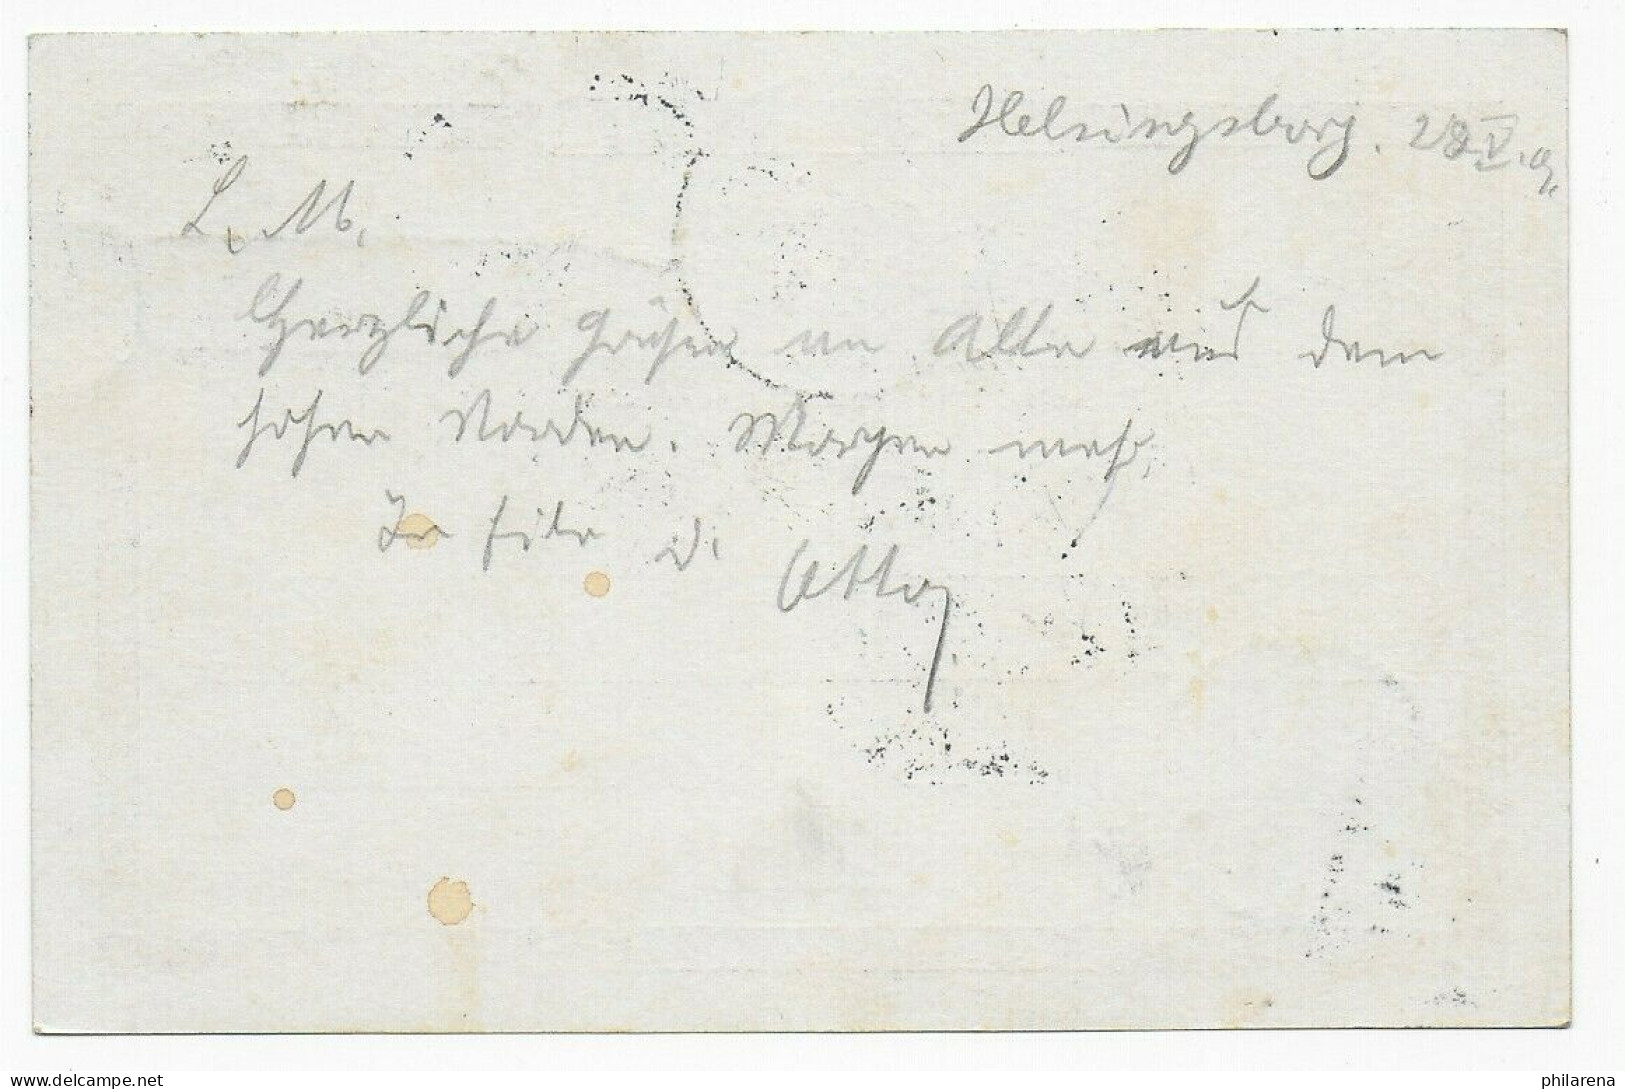 Helsingborg. 28.V.9.
L. M.
Herzliche Grüße an Alle aus dem
hohen Norden. Morgen mehr.
In Eile D. Otto
delcampe.net
philarena